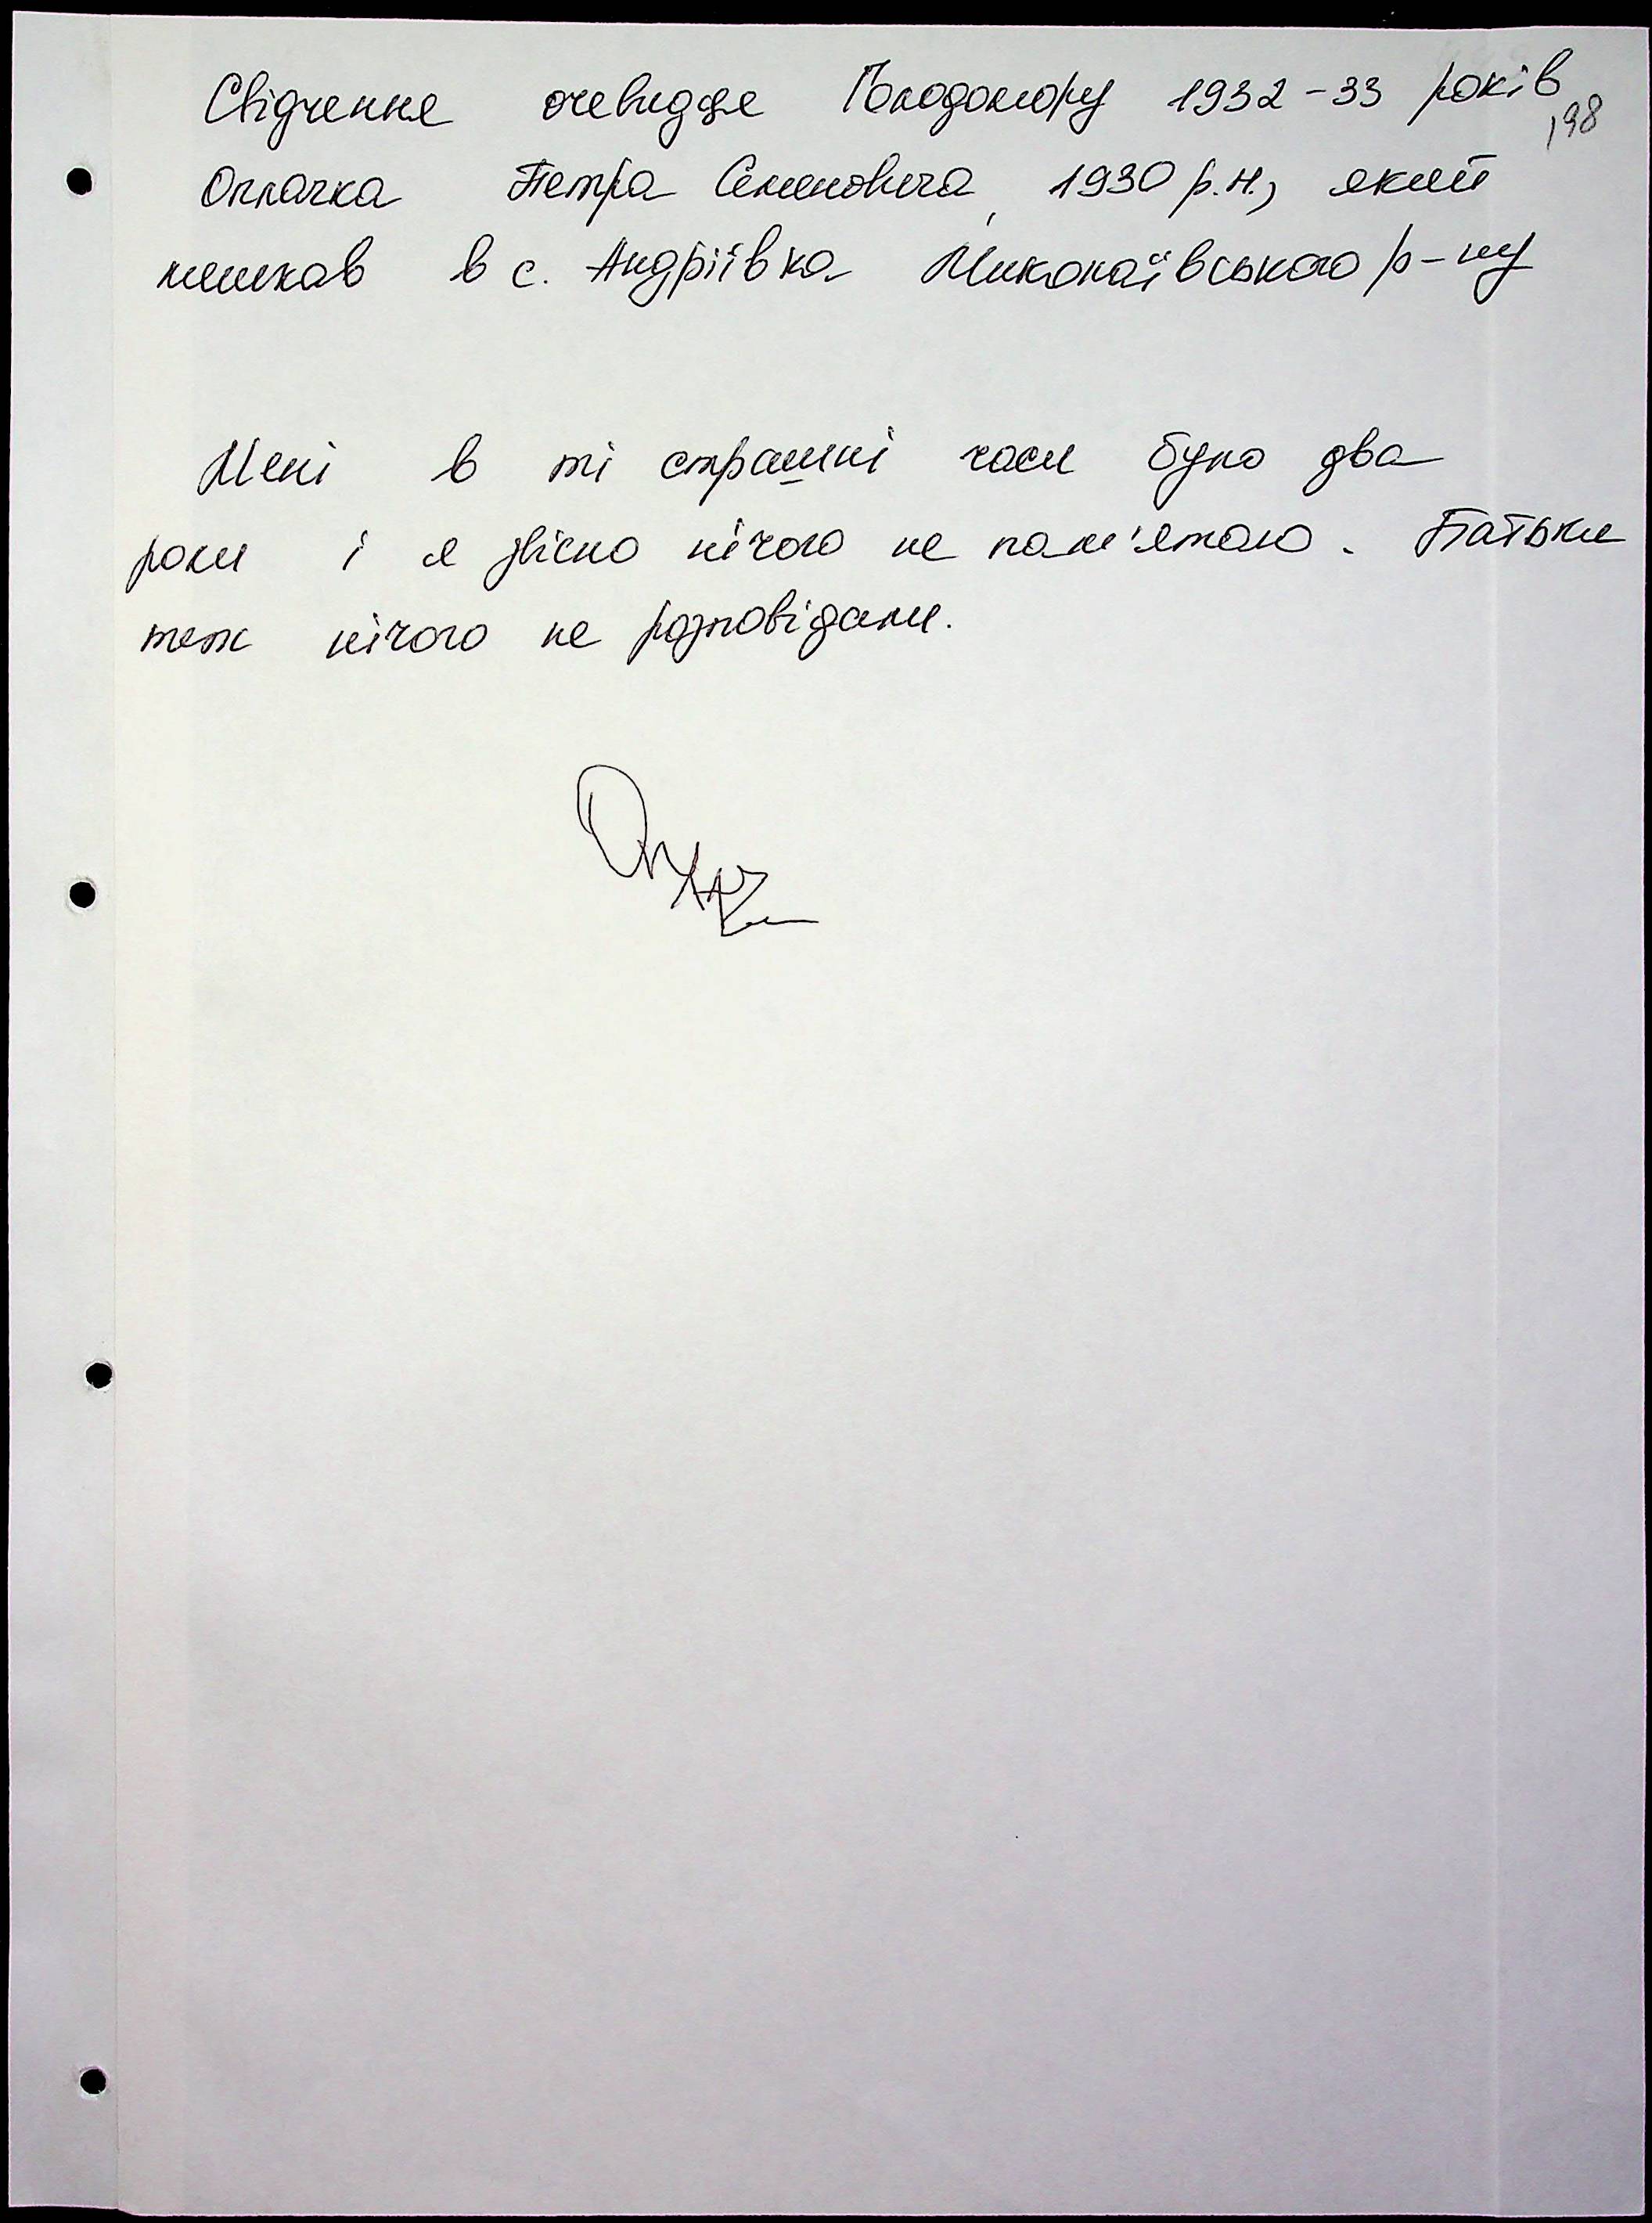 Свідчення очевидця Голодомору 1932-33 років
198
Оплачка Петра Семеновича, 1930 р.н., який
мешкав в с. Андріївка Миколаївського р-ну
Мені в ті страшні часи було два
роки і я звісно нічого не пам'ятаю. Батьки
теж нічого не розповідали.